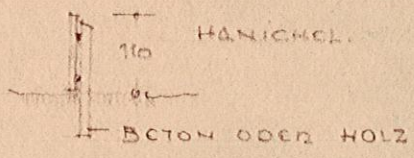 HANICHEL.
110
BETON ODER HOLZ